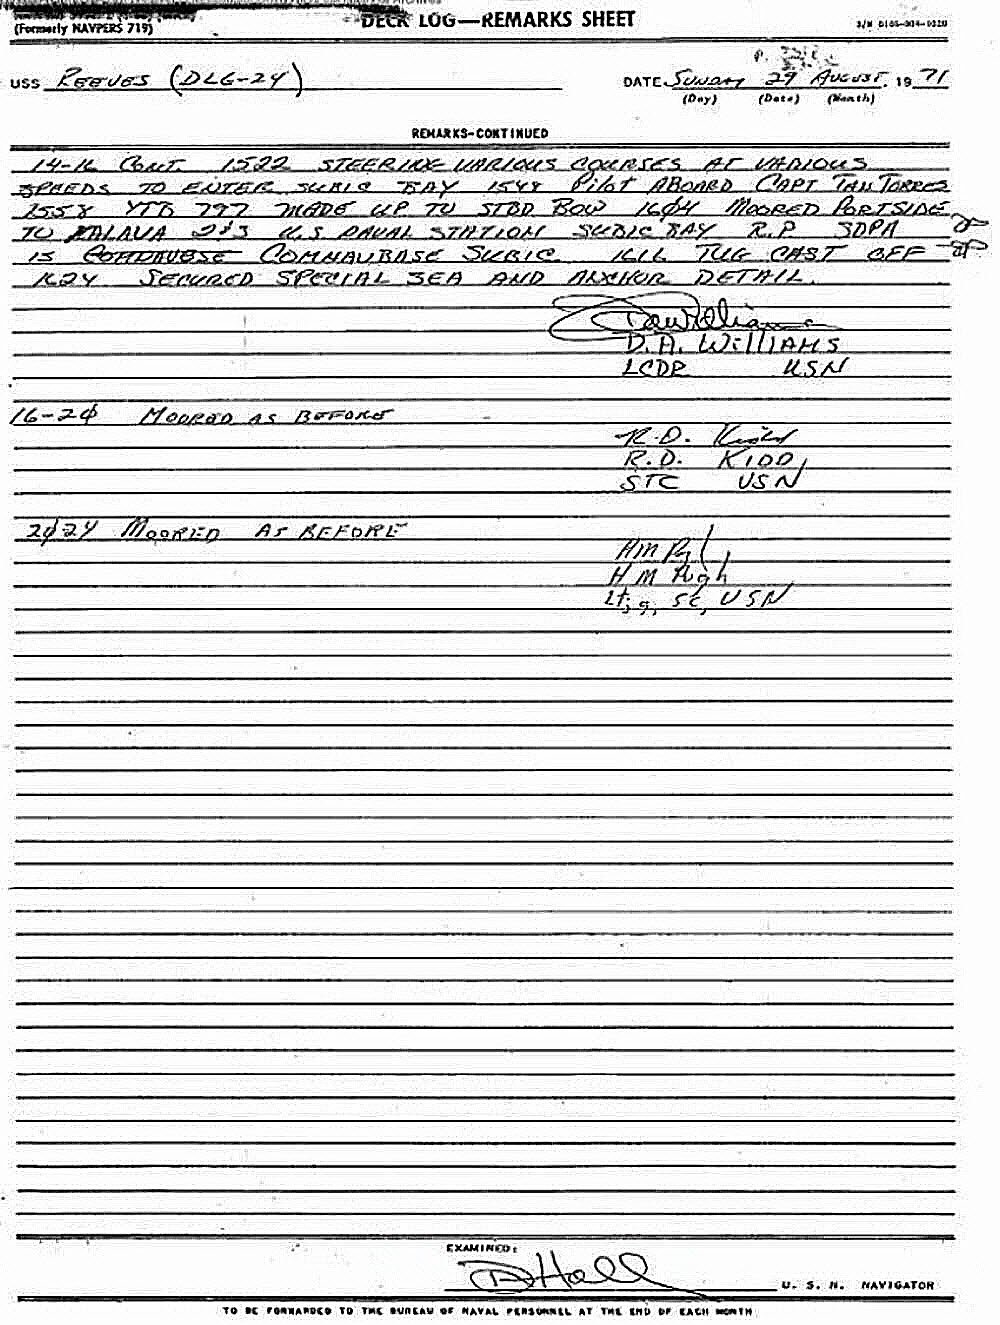 (Formerly NAVPERS 719)
DECK LOG—REMARKS SHEET
USS REEVES (DLG-24)
DATE SUNDAY 29 AUGUST, 19 71
(Day) (Date) (Month)
REMARKS-CONTINUED
14-16 CONT. 1522 STEERING VARIOUS COURSES AT VARIOUS
SPEEDS TO ENTER SUBIC BAY 1548 PILOT ABOARD CAPT TAN TORRES
1558 YTB 797 MADE UP TO STBD BOW 16Ø4 MOORED PORTSIDE
TO ALAVA 2&3 U.S NAVAL STATION SUBIC BAY R.P SOPA
IS COMNAVBASE SUBIC 1616 TUG CAST OFF
1624 SECURED SPECIAL SEA AND ANCHOR DETAIL.
D.A. WILLIAMS
LCDR USN
16-2Ø MOORED AS BEFORE
R.D. Kidd
R.D. KIDD,
STC USN
2Ø-24 MOORED AS BEFORE
HM Pugh
H M Pugh
Ltjg, SC, USN
EXAMINED:
Hall
U. S. N. NAVIGATOR
TO BE FORWARDED TO THE BUREAU OF NAVAL PERSONNEL AT THE END OF EACH MONTH